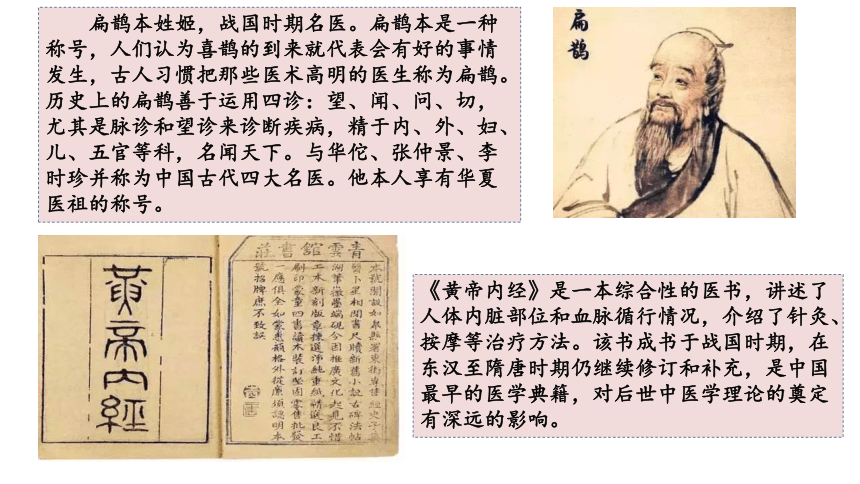 扁鹊本姓姬，战国时期名医。扁鹊本是一种
称号，人们认为喜鹊的到来就代表会有好的事情
发生，古人习惯把那些医术高明的医生称为扁鹊。
历史上的扁鹊善于运用四诊：望、闻、问、切，
尤其是脉诊和望诊来诊断疾病，精于内、外、妇、
儿、五官等科，名闻天下。与华佗、张仲景、李
时珍并称为中国古代四大名医。他本人享有华夏
医祖的称号。
扁鹊
黄帝内經
青雲館書莊
《黄帝内经》是一本综合性的医书，讲述了
人体内脏部位和血脉循行情况，介绍了针灸、
按摩等治疗方法。该书成书于战国时期，在
东汉至隋唐时期仍继续修订和补充，是中国
最早的医学典籍，对后世中医学理论的奠定
有深远的影响。